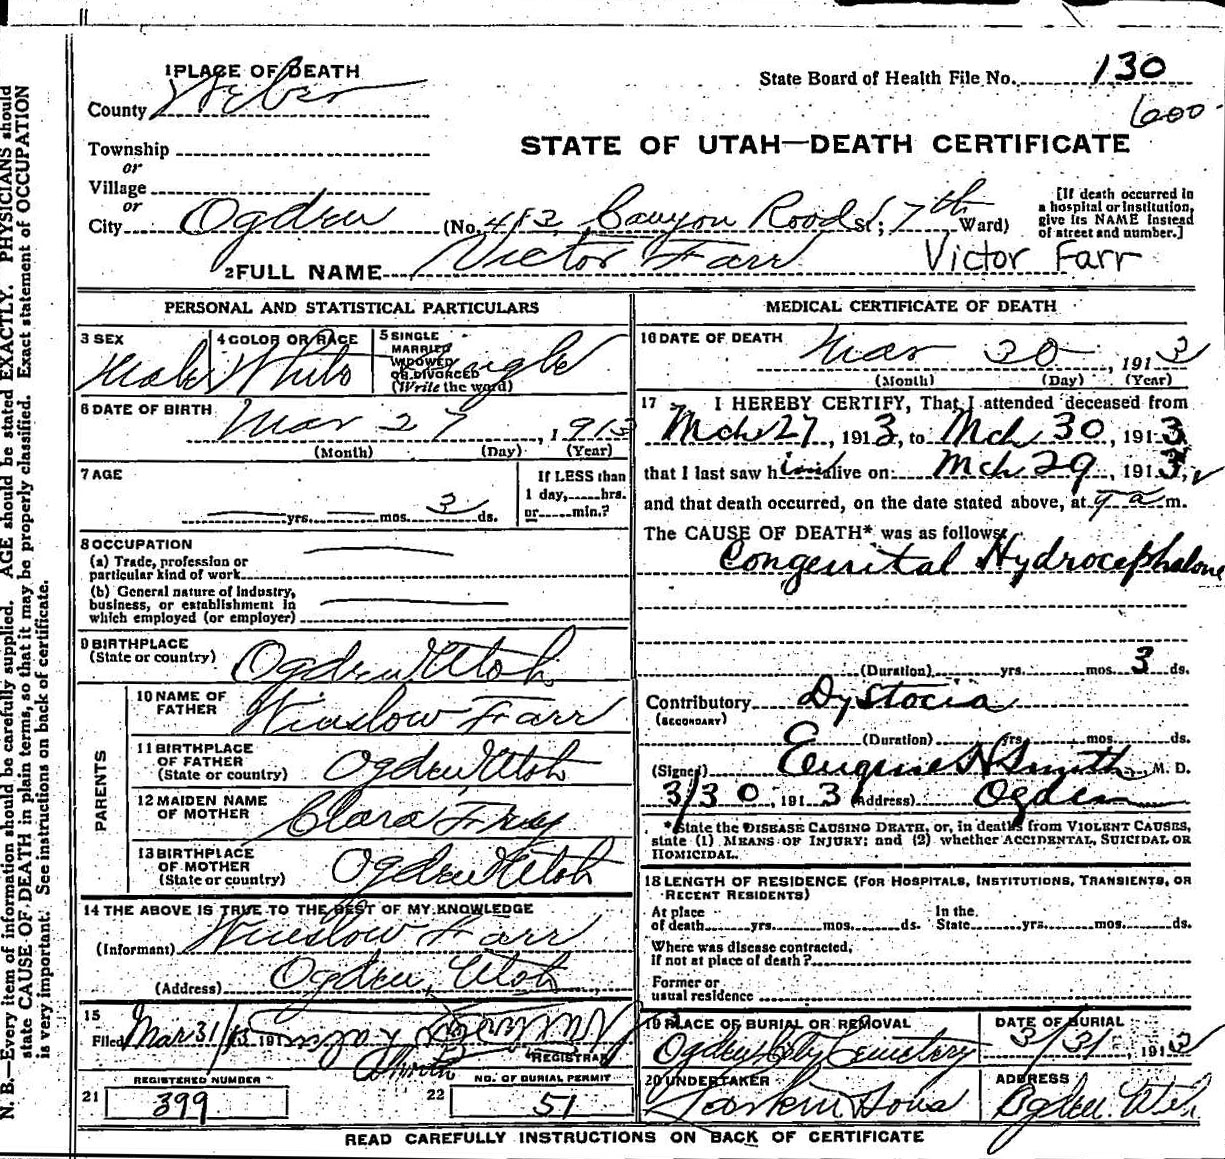 1 PLACE OF DEATH
County Weber
State Board of Health File No. 130
600
STATE OF UTAH—DEATH CERTIFICATE
Township
or
Village
or
City Ogden (No. 483 Canyon Road St; 7th Ward)
[If death occurred in a hospital or institution, give its NAME instead of street and number.]
2 FULL NAME Victor Farr Victor Farr
PERSONAL AND STATISTICAL PARTICULARS
3 SEX Male
4 COLOR OR RACE White
5 SINGLE MARRIED WIDOWED OR DIVORCED (Write the word) Single
6 DATE OF BIRTH Mar 27, 1913
(Month) (Day) (Year)
7 AGE
yrs. mos. 3 ds.
If LESS than 1 day, hrs. or min.?
8 OCCUPATION
(a) Trade, profession or particular kind of work
(b) General nature of industry, business, or establishment in which employed (or employer)
9 BIRTHPLACE
(State or country) Ogden Utah
PARENTS
10 NAME OF FATHER Winslow Farr
11 BIRTHPLACE OF FATHER (State or country) Ogden, Utah
12 MAIDEN NAME OF MOTHER Clara Fry
13 BIRTHPLACE OF MOTHER (State or country) Ogden Utah
14 THE ABOVE IS TRUE TO THE BEST OF MY KNOWLEDGE
(Informant) Winslow Farr
(Address) Ogden, Utah
15
Filed Mar 31/13 191
REGISTRAR
REGISTERED NUMBER
21 399
NO. OF BURIAL PERMIT
22 51
MEDICAL CERTIFICATE OF DEATH
16 DATE OF DEATH Mar 30, 1913
(Month) (Day) (Year)
17 I HEREBY CERTIFY, That I attended deceased from
Mch 27, 1913, to Mch 30, 1913
that I last saw him alive on Mch 29, 1913,
and that death occurred, on the date stated above, at 9 a m.
The CAUSE OF DEATH* was as follows:
Congenital
(Duration) yrs. mos. 3 ds.
Contributory Dystocia
(SECONDARY)
(Duration) yrs. mos. ds.
(Signed) Eugene H Smith, M. D.
3/30, 1913 (Address) Ogden
*State the DISEASE CAUSING DEATH, or, in deaths from VIOLENT CAUSES, state (1) MEANS OF INJURY; and (2) whether ACCIDENTAL, SUICIDAL OR HOMICIDAL.
18 LENGTH OF RESIDENCE (FOR HOSPITALS, INSTITUTIONS, TRANSIENTS, OR RECENT RESIDENTS)
At place of death yrs. mos. ds. In the State yrs. mos. ds.
Where was disease contracted, if not at place of death?
Former or usual residence
19 PLACE OF BURIAL OR REMOVAL
Ogden City Cemetery
DATE OF BURIAL
3/31, 1913
20 UNDERTAKER
Larkin Sons
ADDRESS
Ogden. Utah
READ CAREFULLY INSTRUCTIONS ON BACK OF CERTIFICATE
N. B.—Every item of information should be carefully supplied. AGE should be stated EXACTLY. PHYSICIANS should
state CAUSE OF DEATH in plain terms, so that it may be properly classified. Exact statement of OCCUPATION
is very important. See instructions on back of certificate.